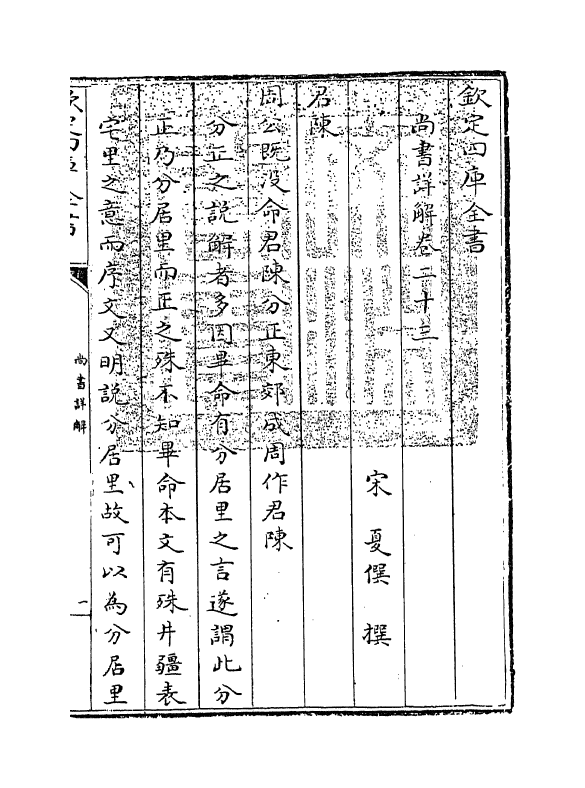 欽定四庫全書
尚書詳解卷二十三
宋 夏僎 撰
君陳
周公既沒命君陳分正東郊成周作君陳
分正之說解者多因畢命有分居里之言遂謂此分
正乃分居里而正之殊不知畢命本文有殊井疆表
宅里之意而序文又明説分居里故可以為分居里
欽定四庫全書
尚書詳解
一